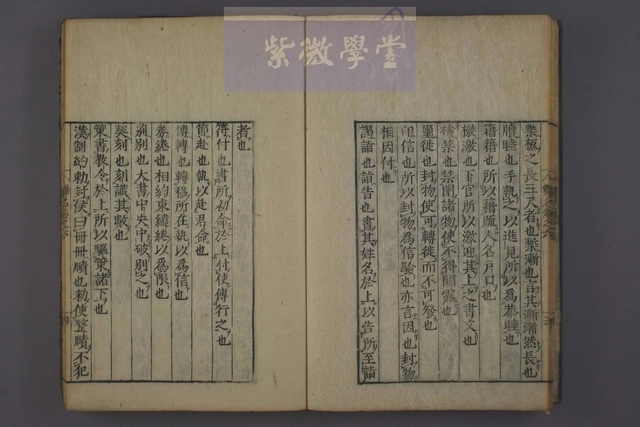 紫微學堂
槧板之長三尺者也槧漸也言其漸漸然長也
牘睦也手執之以進見所以為恭睦也
籍籍也所以籍疏人名戶口也
檄激也下官所以激迎其上之書文也
檢禁也禁閉諸物使不得開露也
璽徙也封物使可轉徙而不可發也
印信也所以封物為信驗也亦言因也封物
相因付也
謁詣也詣告也書其姓名於上以告所至詣
者也
符付也書所勑命於上付使傳行之也
節赴也執以赴君命也
傳轉也轉移所在執以為信也
券綣也相約束繾綣以為限也
莂別也大書中央中破別之也
契刻也刻識其數也
策書教令於上所以驅策諸下也
漢制約勑封侯曰冊冊賾也勑使整賾不犯